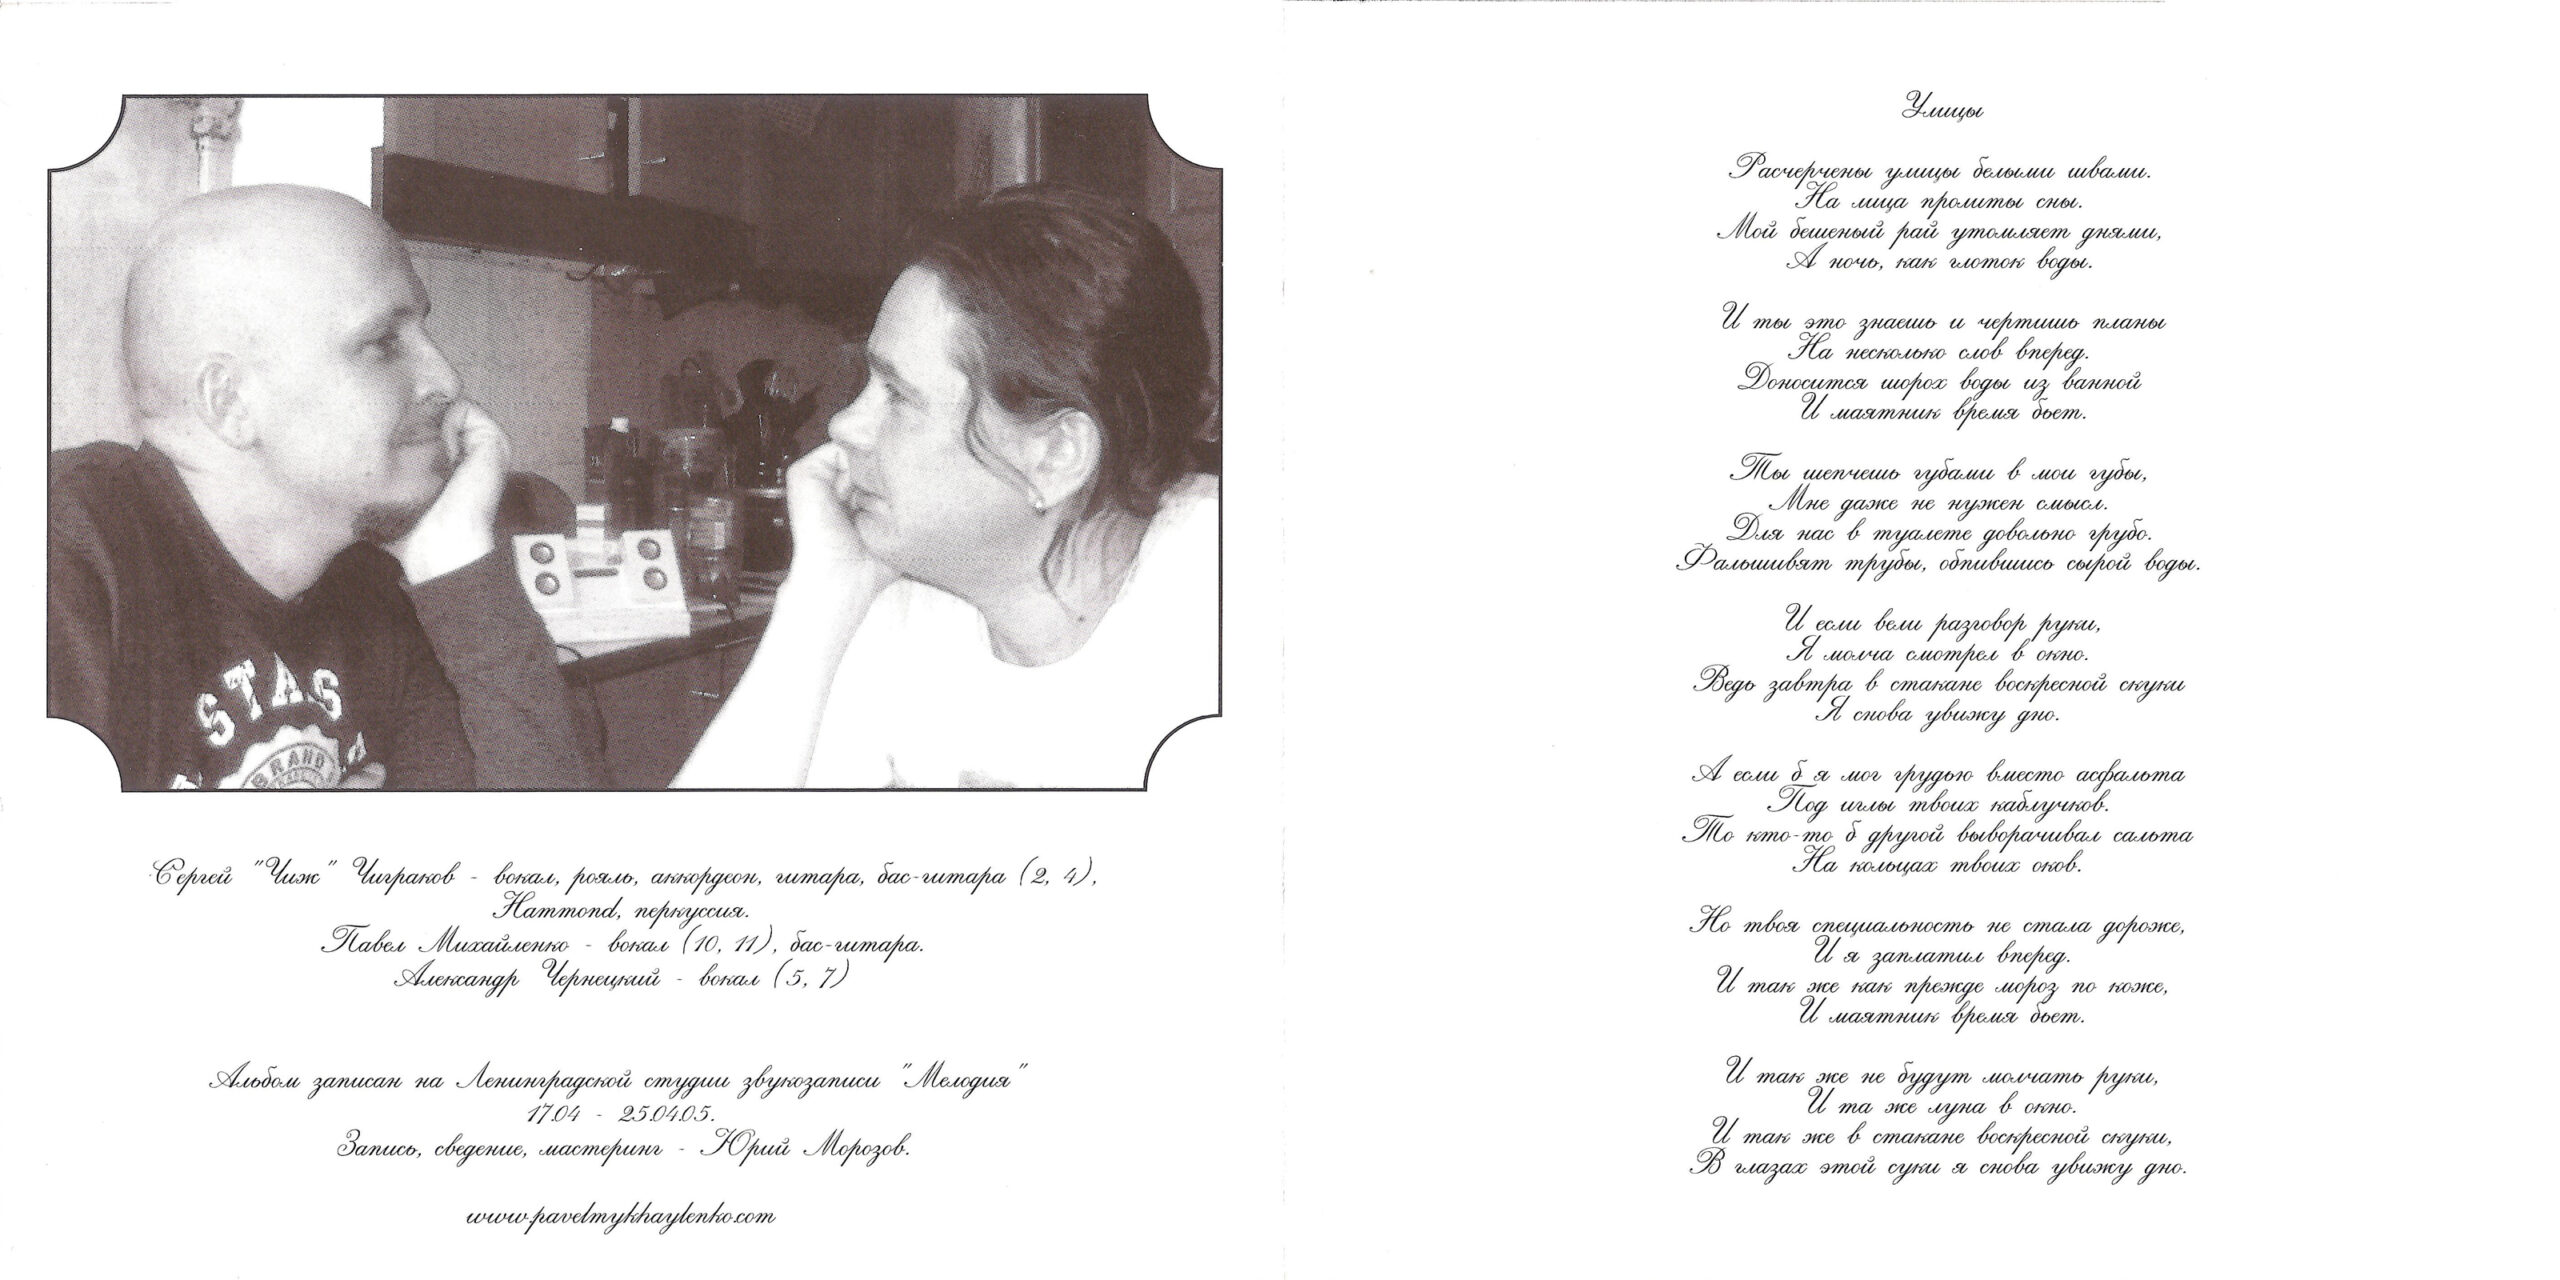 STAS
BRAND
Сергей "Чиж" Чиграков - вокал, рояль, аккордеон, гитара, бас-гитара (2, 4),
Hammond, перкуссия.
Павел Михайленко - вокал (10, 11), бас-гитара.
Александр Чернецкий - вокал (5, 7)
Альбом записан на Ленинградской студии звукозаписи "Мелодия"
17.04 - 25.04.05.
Запись, сведение, мастеринг - Юрий Морозов.
www.pavelmykhaylenko.com
Улицы
Расчерчены улицы белыми швами.
На лица пролиты сны.
Мой бешеный рай утомляет днями,
А ночь, как глоток воды.
И ты это знаешь и чертишь планы
На несколько слов вперед.
Доносится шорох воды из ванной
И маятник время бьет.
Ты шепчешь губами в мои губы,
Мне даже не нужен смысл.
Для нас в туалете довольно грубо.
Фальшивят трубы, обпившись сырой воды.
И если вели разговор руки,
Я молча смотрел в окно.
Ведь завтра в стакане воскресной скуки
Я снова увижу дно.
А если б я мог грудью вместо асфальта
Под иглы твоих каблучков.
То кто-то б другой выворачивал сальта
На кольцах твоих оков.
Но твоя специальность не стала дороже,
И я заплатил вперед.
И так же как прежде мороз по коже,
И маятник время бьет.
И так же не будут молчать руки,
И та же луна в окно.
И так же в стакане воскресной скуки,
В глазах этой суки я снова увижу дно.